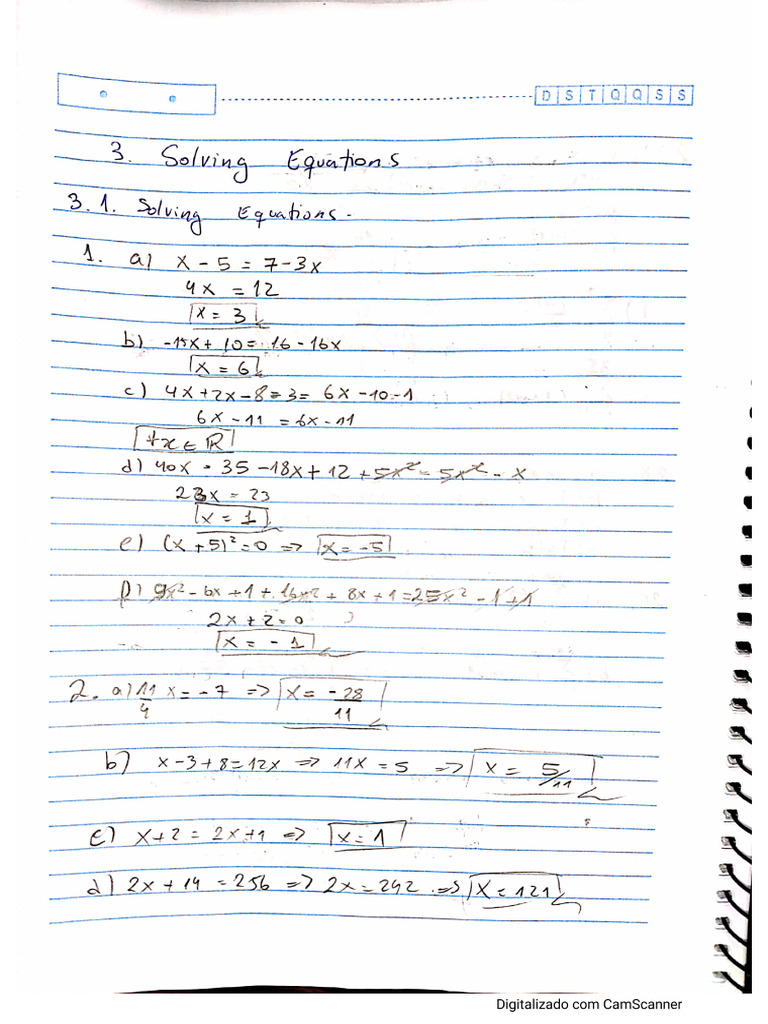 D S T Q Q S S
3. Solving Equations
3.1. Solving Equations.
1. a) x - 5 = 7 - 3x
4x = 12
x = 3
b) -15x + 10 = 16 - 16x
x = 6
c) 4x + 2x - 8 = 3 = 6x - 10 - 1
6x - 11 = 6x - 11
∀x ∈ ℝ
d) 40x - 35 - 18x + 12 + 5x² = 5x² - x
23x = 23
x = 1
e) (x + 5)² = 0 => x = -5
f) 9x² - 6x + 1 + 16x² + 8x + 1 = 25x² - 1 + 1
2x + 2 = 0
x = -1
2. a) 11/4 x = -7 => x = -28/11
b) x - 3 + 8 = 12x => 11x = 5 => x = 5/11
c) x + 2 = 2x + 1 => x = 1
d) 2x + 14 = 256 => 2x = 242 => x = 121
Digitalizado com CamScanner